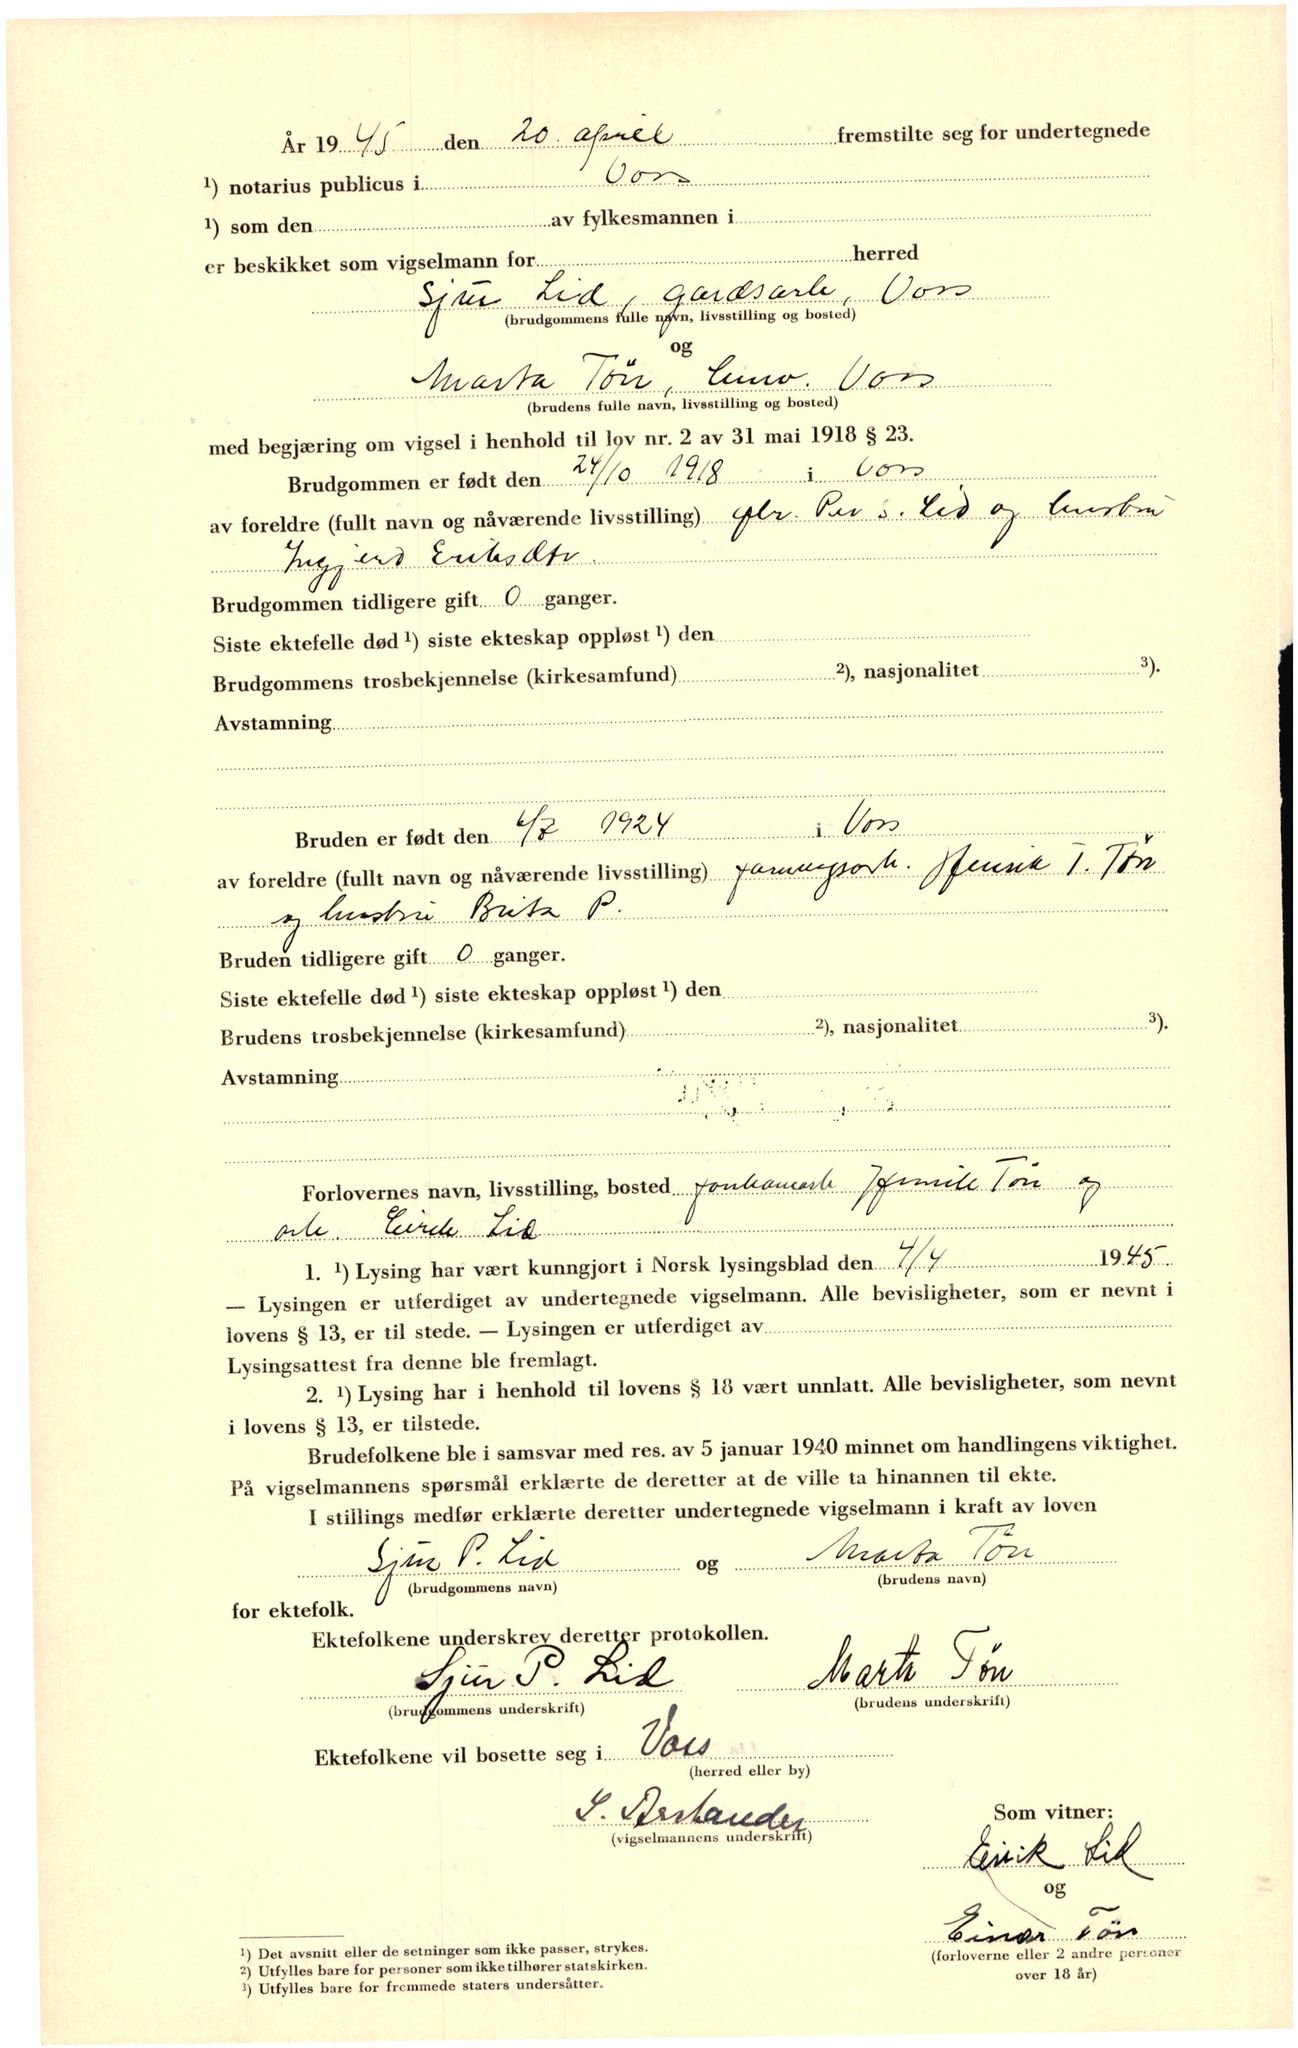 År 1945 den 20. april fremstilte seg for undertegnede
¹) notarius publicus i Voss
¹) som den av fylkesmannen i
er beskikket som vigselmann for herred
Sjur Lid, gardsarb, Voss
(brudgommens fulle navn, livsstilling og bosted)
og
Marta Tön, Voss
(brudens fulle navn, livsstilling og bosted)
med begjæring om vigsel i henhold til lov nr. 2 av 31 mai 1918 § 23.
Brudgommen er født den 24/10 1918 i Voss
av foreldre (fullt navn og nåværende livsstilling) gbr. Per S. Lid og hustru
Ingjerd Eriksdtr.
Brudgommen tidligere gift 0 ganger.
Siste ektefelle død ¹) siste ekteskap oppløst ¹) den
Brudgommens trosbekjennelse (kirkesamfund) ²), nasjonalitet ³).
Avstamning
Bruden er født den 6/7 1924 i Voss
av foreldre (fullt navn og nåværende livsstilling) Henrik T. Tön
og hustru Brita P.
Bruden tidligere gift 0 ganger.
Siste ektefelle død ¹) siste ekteskap oppløst ¹) den
Brudens trosbekjennelse (kirkesamfund) ²), nasjonalitet ³).
Avstamning
Forlovernes navn, livsstilling, bosted Tön og
arb. Eirik Lid
1. ¹) Lysing har vært kunngjort i Norsk lysingsblad den 4/4 1945.
— Lysingen er utferdiget av undertegnede vigselmann. Alle bevisligheter, som er nevnt i
lovens § 13, er til stede. — Lysingen er utferdiget av
Lysingsattest fra denne ble fremlagt.
2. ¹) Lysing har i henhold til lovens § 18 vært unnlatt. Alle bevisligheter, som nevnt
i lovens § 13, er tilstede.
Brudefolkene ble i samsvar med res. av 5 januar 1940 minnet om handlingens viktighet.
På vigselmannens spørsmål erklærte de deretter at de ville ta hinannen til ekte.
I stillings medfør erklærte deretter undertegnede vigselmann i kraft av loven
Sjur P. Lid og Marta Tön
(brudgommens navn) (brudens navn)
for ektefolk.
Ektefolkene underskrev deretter protokollen.
Sjur P. Lid Marta Tön
(brudgommens underskrift) (brudens underskrift)
Ektefolkene vil bosette seg i Voss
(herred eller by)
(vigselmannens underskrift)
Som vitner:
Eirik Lid
og
Einar Tön
(forloverne eller 2 andre personer
over 18 år)
¹) Det avsnitt eller de setninger som ikke passer, strykes.
²) Utfylles bare for personer som ikke tilhører statskirken.
³) Utfylles bare for fremmede staters undersåtter.